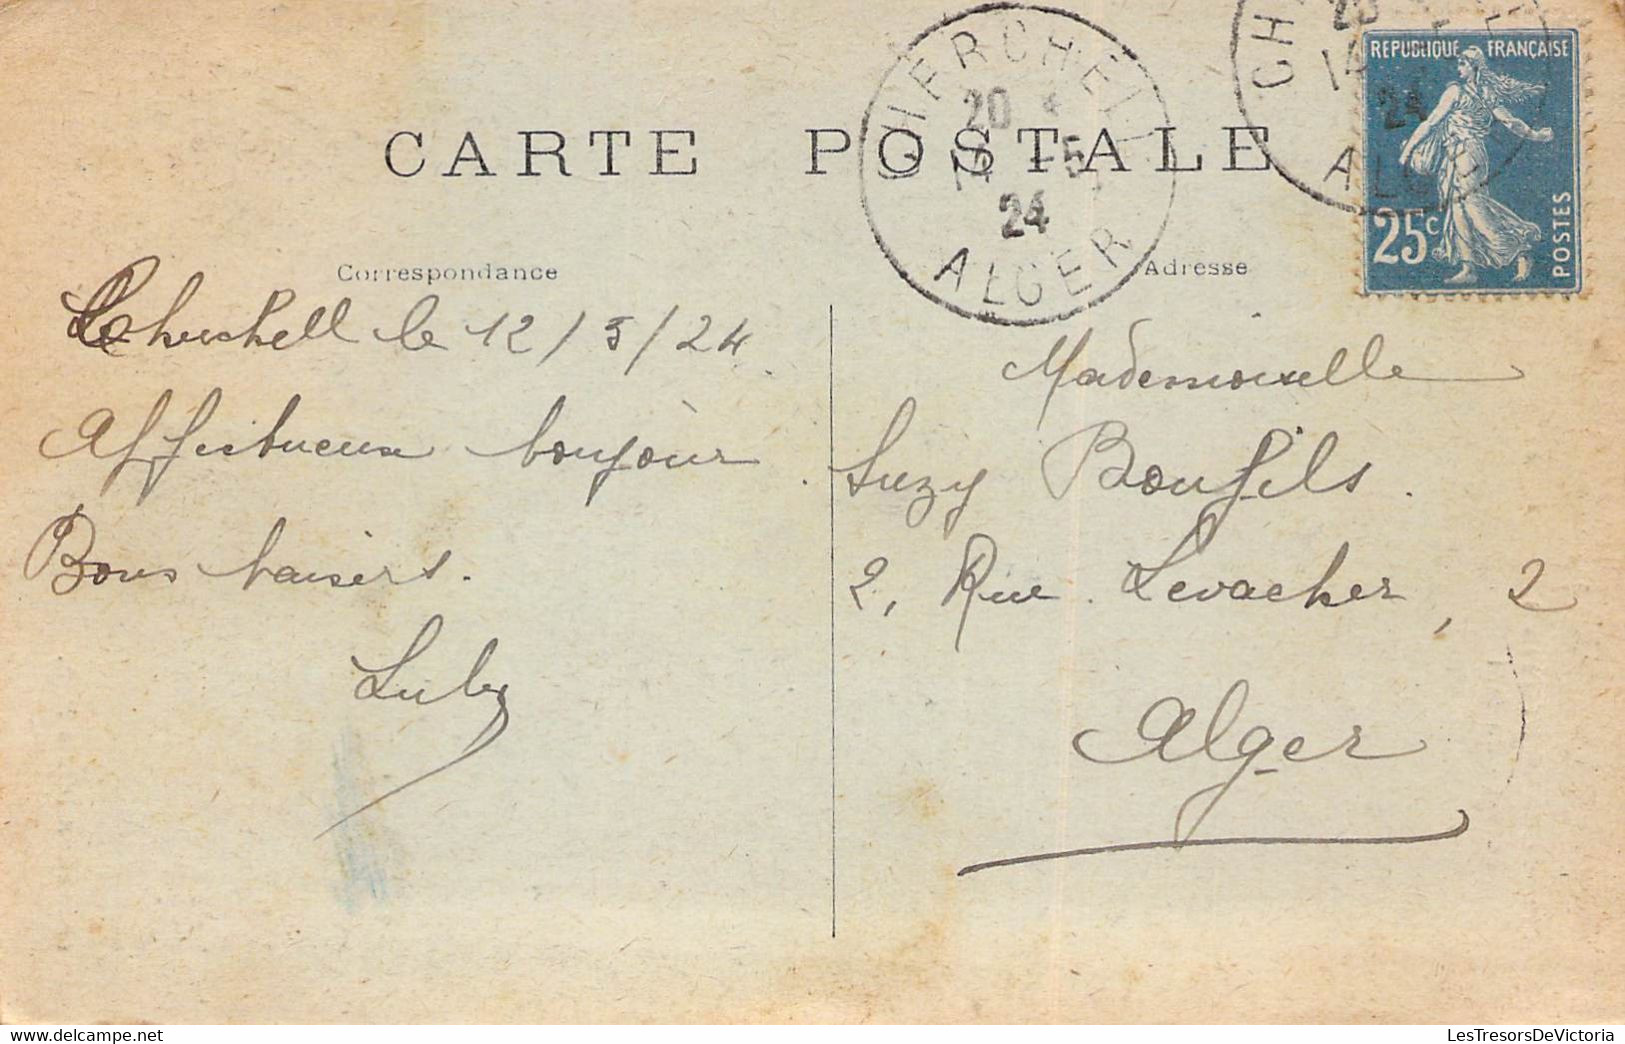 CARTE POSTALE
CHERCHELL
20 *
14 -5
24
ALGER
CH
20
14
24
ALGER
REPUBLIQUE FRANÇAISE
25c
POSTES
Correspondance
Adresse
Cherchell le 12/5/24.
Affectueux bonjour.
Bons baisers.
Luby
Mademoiselle
Suzy Bonfils.
2, Rue Levacher, 2
Alger
LesTresorsDeVictoria